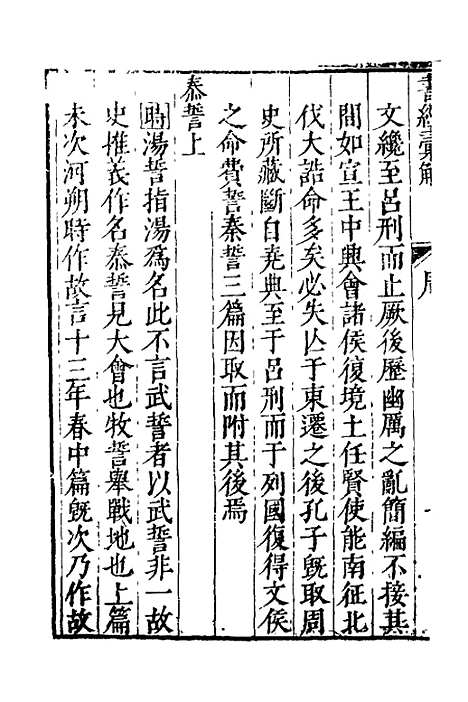 書經彙解
周
文纔至呂刑而止厥後歷幽厲之亂簡編不接其
間如宣王中興會諸侯復境土任賢使能南征北
伐大誥命多矣必失亾于東遷之後孔子旣取周
史所藏斷自堯典至于呂刑而于列國復得文侯
之命費誓秦誓三篇因取而附其後焉
泰誓上
時湯誓指湯爲名此不言武誓者以武誓非一故
史推義作名泰誓見大會也牧誓舉戰地也上篇
未次河朔時作故言十三年春中篇旣次乃作故